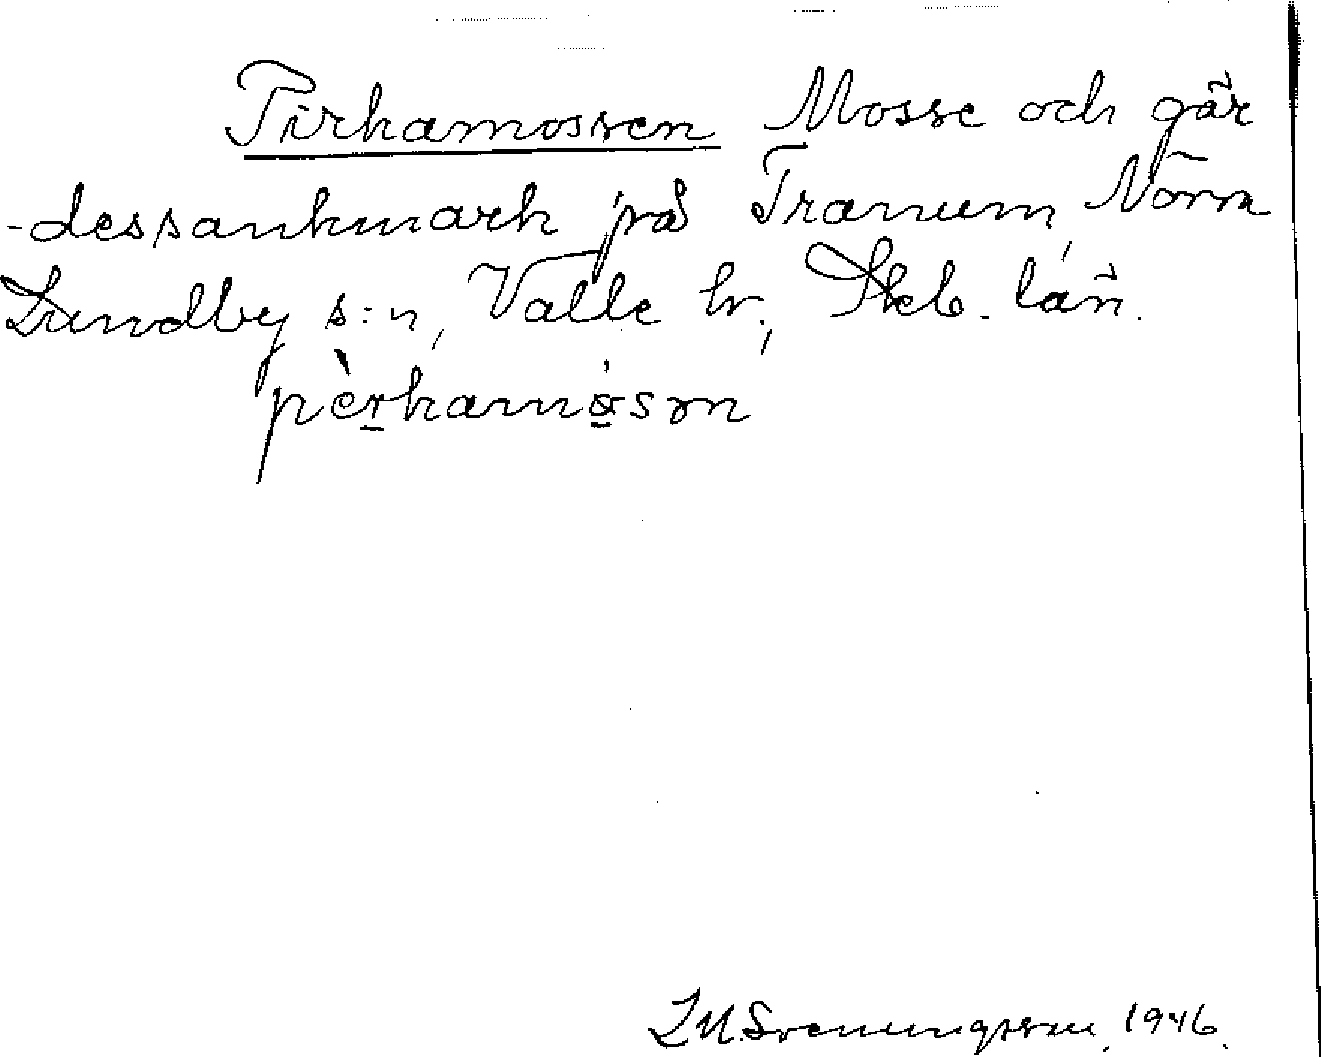 Pirkamossen Mosse och går
-dessankmark på Tranum, Norra
Lundby s:n, Valle hr., Skb. län.
pèrkamɷ̀sən
L M. Svenungsson, 1946.